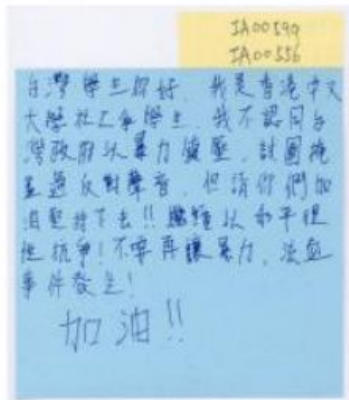 IA00599
IA00556
台灣學生你好. 我是香港中文
大學社工系學生. 我不認同台
灣政府以暴力鎮壓, 試圖掩
蓋過反對聲音, 但請你們加
油堅持下去!! 繼續以和平理
性抗爭! 不要再讓暴力、流血
事件發生!
加油!!